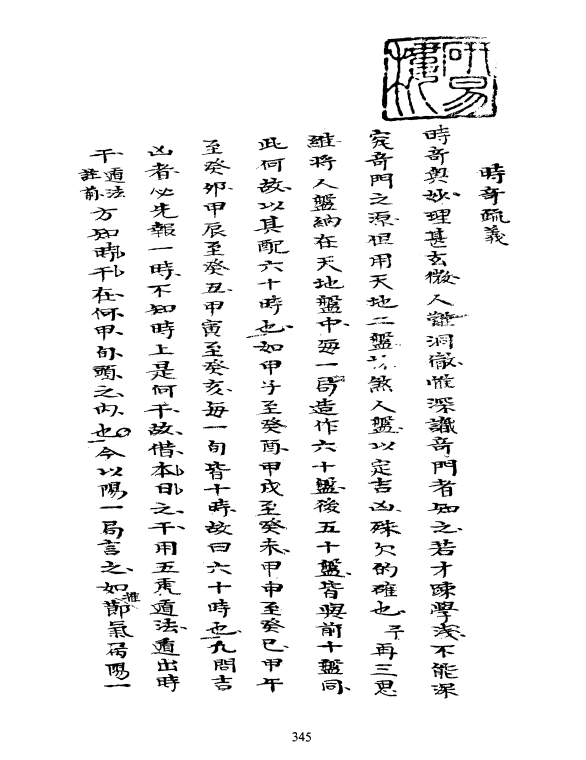 研易樓
時奇疏義
時奇奧妙理甚玄微人難洞徹惟深識奇門者知之若才疎學淺不能深
究奇門之源但用天地二盤煞人盤以定吉凶殊欠的確也予再三思
維將人盤納在天地盤中每一局造作六十盤後五十盤皆與前十盤同
此何故以其配六十時也如甲子至癸酉甲戌至癸未甲申至癸巳甲午
至癸卯甲辰至癸丑甲寅至癸亥每一旬皆十時故曰六十時也凡問吉
凶者必先報一時不知時上是何干故借本日之干用五虎遁法遁出時
干遁法註前方知時干在何甲旬頭之內也今以陽一局言之如推節氣屬陽一
345